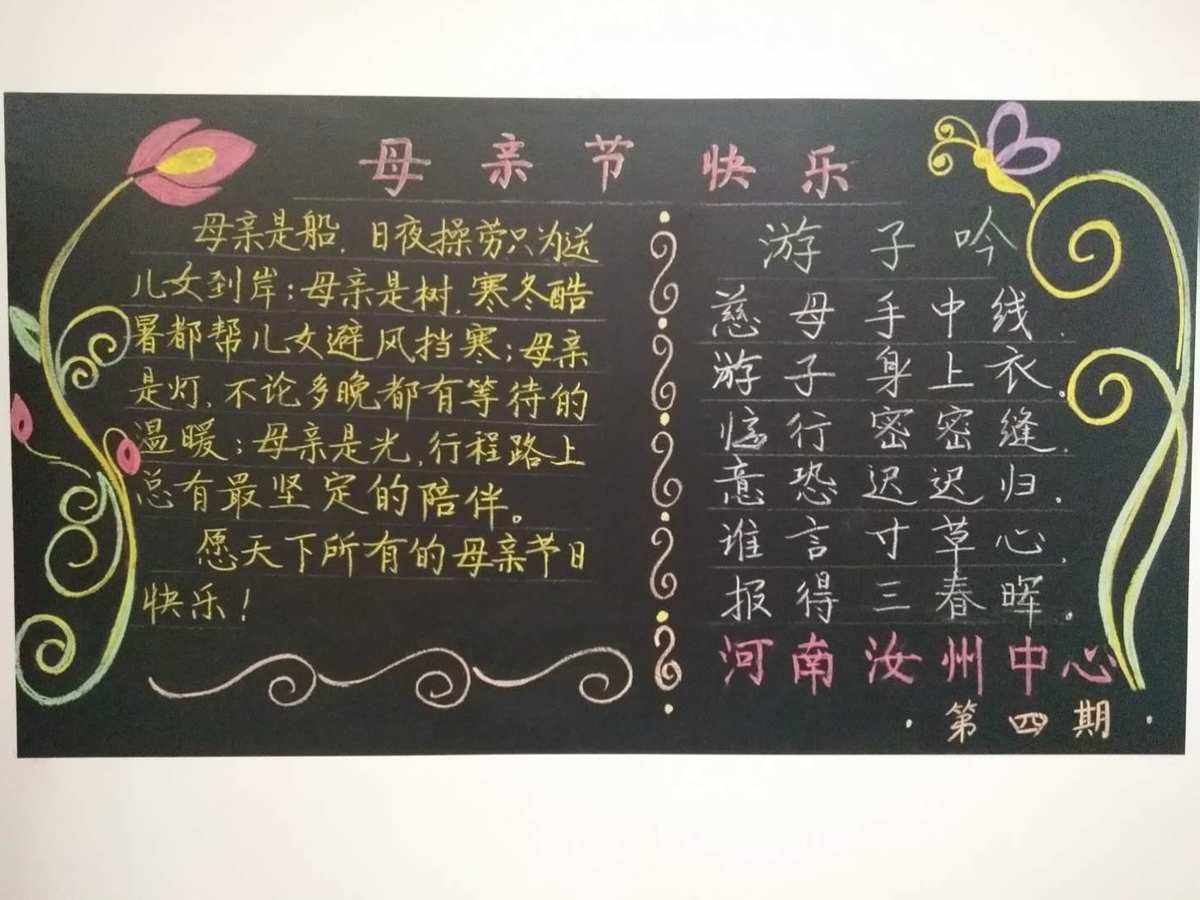 母亲节快乐
母亲是船,日夜操劳只为送
儿女到岸;母亲是树,寒冬酷
暑都帮儿女避风挡寒;母亲
是灯,不论多晚都有等待的
温暖;母亲是光,行程路上
总有最坚定的陪伴。
愿天下所有的母亲节日
快乐!
游子吟
慈母手中线,
游子身上衣。
临行密密缝,
意恐迟迟归。
谁言寸草心,
报得三春晖。
河南汝州中心
第四期